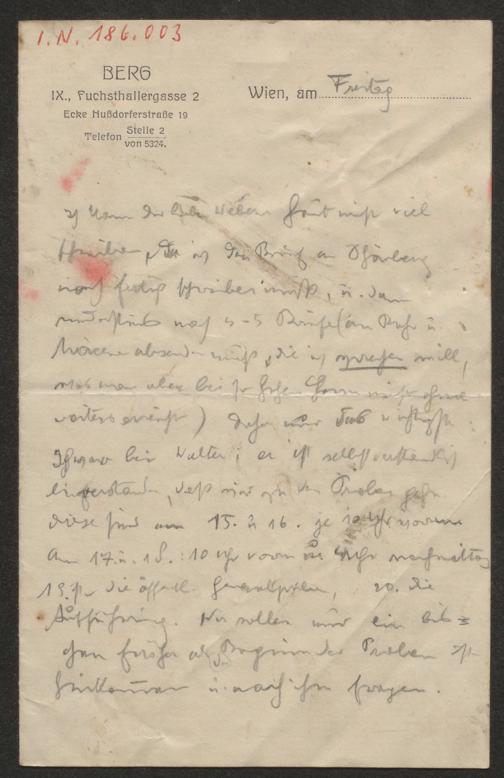 I.N. 186.003
BERG
IX., Fuchsthallergasse 2
Ecke Nußdorferstraße 19
Telefon Stelle 2 von 5324.
Wien, am Freitag
Ich kann Dir lieber Webern heut nicht viel
schreiben, da ich den Brief an Schönberg
noch fertig schreiben muß, u. dann
mindestens noch 4-5 Briefe (an Ruhr u.
absenden muß, die ich sprechen will,
was man aber bei so hohen nicht ohne
weiters erreicht) Daher nur das wichtigste:
Ich war bei Walter; er ist selbstverständlich
einverstanden, daß wir zu den Proben gehn
diese sind am 15. u 16. je 10 Uhr vorm
am 17. u. 18.: 10 Uhr vorm Uhr nachmittag
19. ist die öffentl. Generalprobe, 20. die
Aufführung. Wir sollen nur ein bis-
chen früher als Beginn der Proben
hinkommen u. nach ihm fragen.